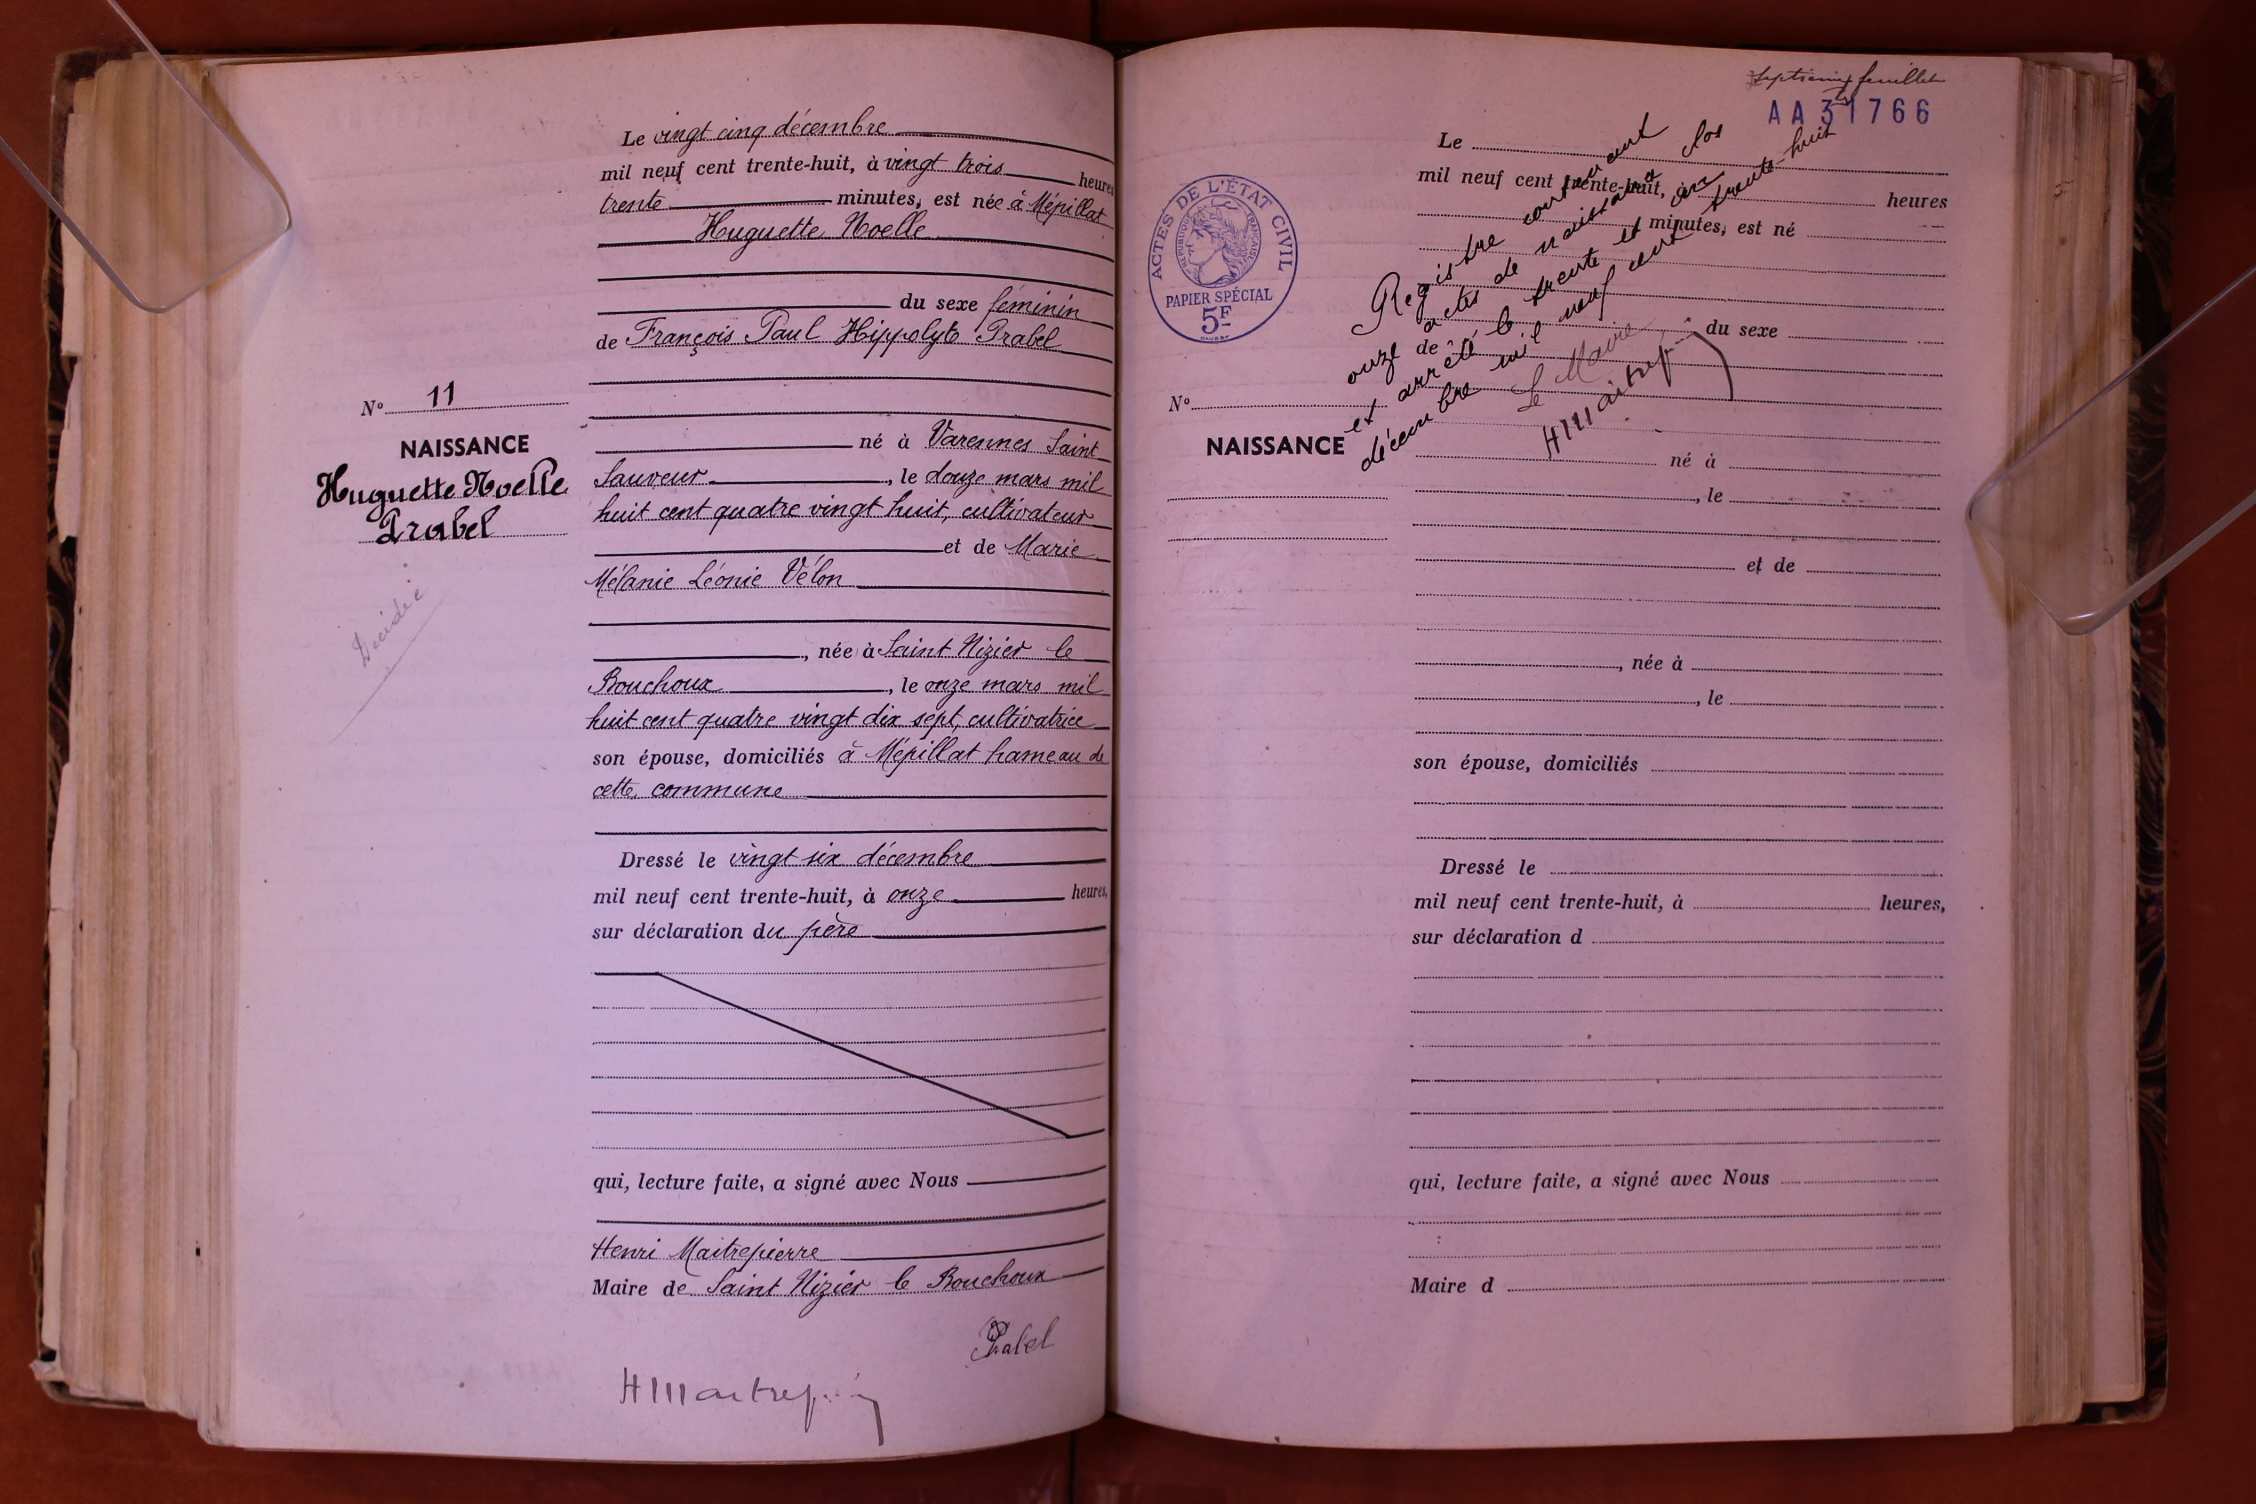 Le vingt cinq décembre
mil neuf cent trente-huit, à vingt trois heures
trente minutes, est née à Mépillat
Huguette Noelle
du sexe féminin
de François Paul Hippolyte Prabel
né à Varennes Saint
Sauveur, le douze mars mil
huit cent quatre vingt huit, cultivateur
et de Marie
Mélanie Léonie Vélon
, née à Saint Nizier le
Bouchoux, le onze mars mil
huit cent quatre vingt dix sept, cultivatrice
son épouse, domiciliés à Mépillat hameau de
cette commune
Dressé le vingt six décembre
mil neuf cent trente-huit, à onze heures,
sur déclaration du père
qui, lecture faite, a signé avec Nous
Henri Maitrepierre
Maire de Saint Nizier le Bouchoux
Prabel
HMaitrepierre
N° 11
NAISSANCE
Huguette Noelle
Prabel
Décédée
septième feuillet
AA31766
ACTES DE L'ÉTAT CIVIL
RÉPUBLIQUE FRANÇAISE
PAPIER SPÉCIAL
5F
Registre contenant
onze actes de naissance clos
et arrêté le trente et un
décembre mil neuf cent trente-huit
Le Maire
HMaitrep
Le
mil neuf cent trente-huit, à heures
minutes, est né
du sexe
de
N°
NAISSANCE
né à
, le
et de
, née à
, le
son épouse, domiciliés
Dressé le
mil neuf cent trente-huit, à heures,
sur déclaration d
qui, lecture faite, a signé avec Nous
Maire d